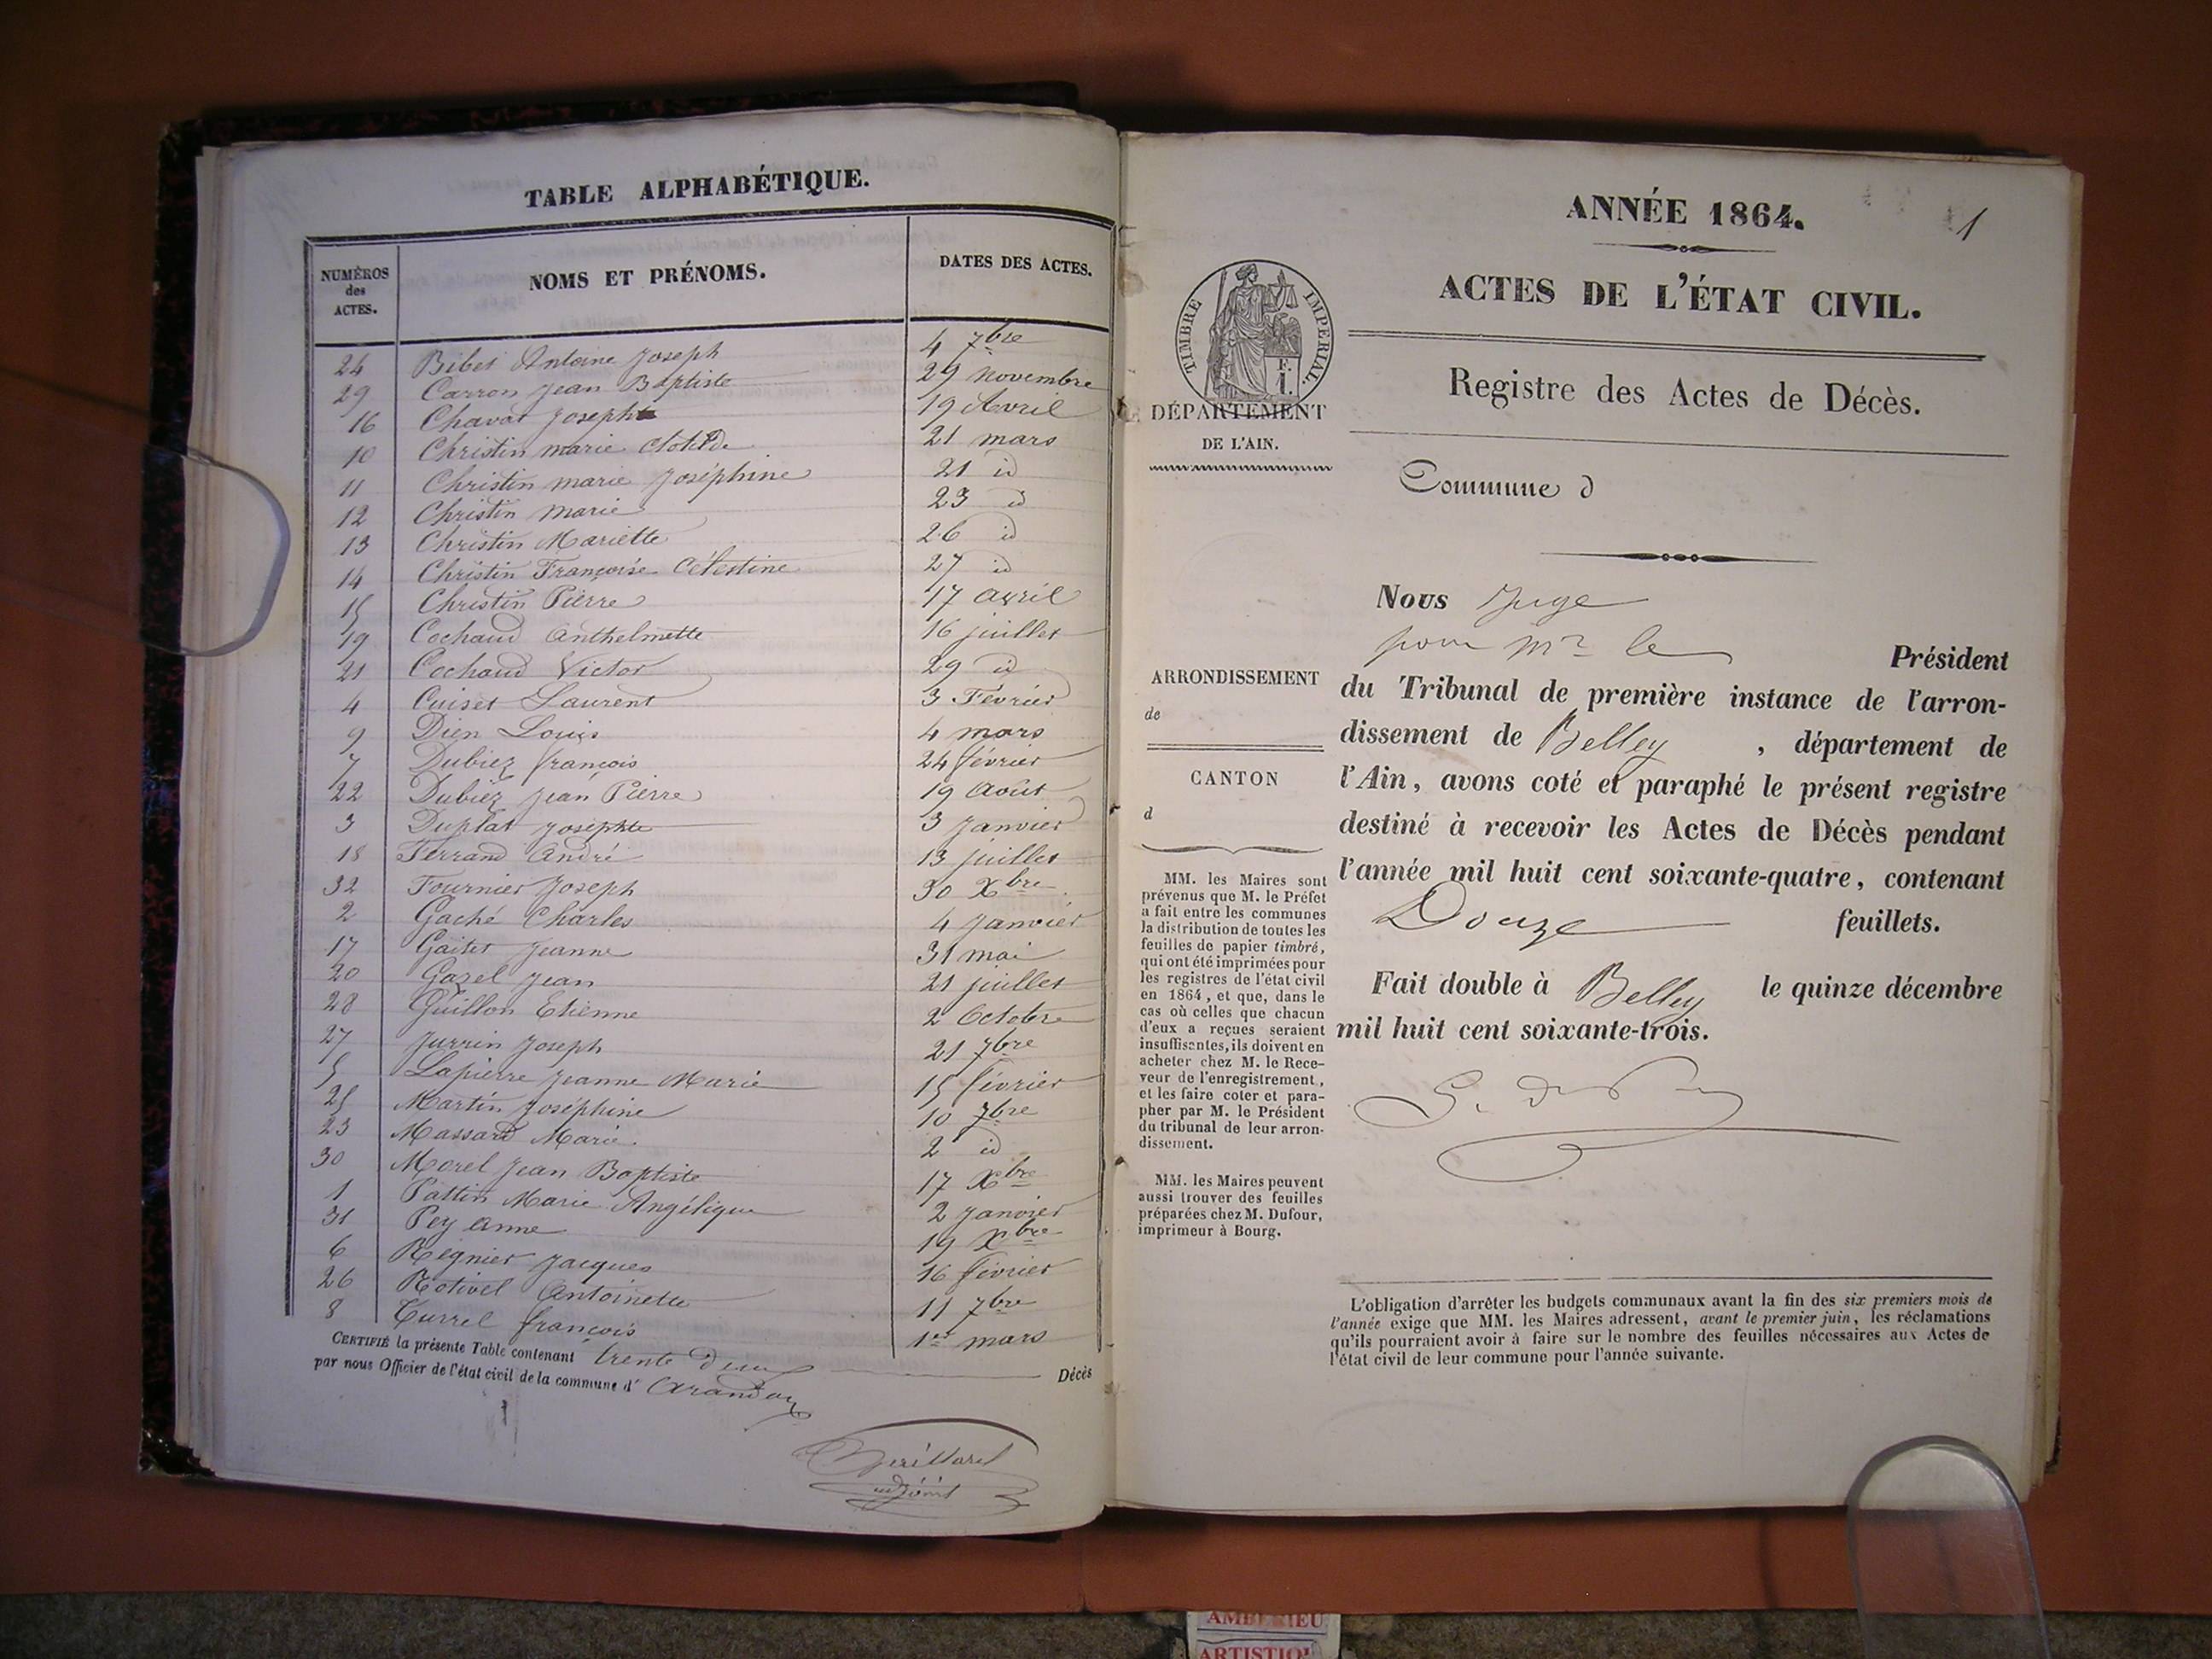 TABLE ALPHABÉTIQUE.
NUMÉROS des ACTES. NOMS ET PRÉNOMS. DATES DES ACTES.
24 Bibet Antoine Joseph 4 7bre
29 Carron Jean Baptiste 29 novembre
16 Chavat Joseph 19 Avril
10 Christin marie Clotilde 21 mars
11 Christin marie Joséphine 21 id
12 Christin marie 23 id
13 Christin Mariette 26 id
14 Christin Françoise Célestine 27 id
15 Christin Pierre 17 avril
19 Cochaud Anthelmette 16 juillet
21 Cochaud Victor 29 id
4 Cuiset Laurent 3 Février
9 Dien Louis 4 mars
7 Dubiez françois 24 février
22 Dubiez Jean Pierre 19 Août
3 Duplat Josephte 3 Janvier
18 Ferrand André 13 juillet
32 Fournier Joseph 30 Xbre
2 Gaché Charles 4 Janvier
17 Gaitet Jeanne 31 mai
20 Gazel Jean 21 juillet
28 Guillon Etienne 2 Octobre
27 Jurrin Joseph 21 7bre
5 Lapierre Jeanne Marie 15 février
25 Martin Joséphine 10 7bre
23 Massard Marie 2 id
30 Morel Jean Baptiste 17 Xbre
1 Pattin Marie Angélique 2 Janvier
31 Pey anne 19 Xbre
6 Régnier Jacques 16 février
26 Rotivel Antoinette 11 7bre
8 Turrel françois 1er mars
CERTIFIÉ la présente Table contenant trente deux Décès
par nous Officier de l'état civil de la commune d' Arandas
adjoint
ANNÉE 1864.
1
ACTES DE L'ÉTAT CIVIL.
TIMBRE IMPERIAL.
F.
I.
Registre des Actes de Décès.
DÉPARTEMENT
DE L'AIN.
Commune d
Nous Juge
pour Mr le Président
du Tribunal de première instance de l'arron-
dissement de Belley, département de
l'Ain, avons coté et paraphé le présent registre
destiné à recevoir les Actes de Décès pendant
l'année mil huit cent soixante-quatre, contenant
Douze feuillets.
Fait double à Belley le quinze décembre
mil huit cent soixante-trois.
ARRONDISSEMENT
de
CANTON
d
MM. les Maires sont
prévenus que M. le Préfet
a fait entre les communes
la distribution de toutes les
feuilles de papier timbré,
qui ont été imprimées pour
les registres de l'état civil
en 1864, et que, dans le
cas où celles que chacun
d'eux a reçues seraient
insuffisantes, ils doivent en
acheter chez M. le Rece-
veur de l'enregistrement,
et les faire coter et para-
pher par M. le Président
du tribunal de leur arron-
dissement.
MM. les Maires peuvent
aussi trouver des feuilles
préparées chez M. Dufour,
imprimeur à Bourg.
L'obligation d'arrêter les budgets communaux avant la fin des six premiers mois de
l'année exige que MM. les Maires adressent, avant le premier juin, les réclamations
qu'ils pourraient avoir à faire sur le nombre des feuilles nécessaires aux Actes de
l'état civil de leur commune pour l'année suivante.